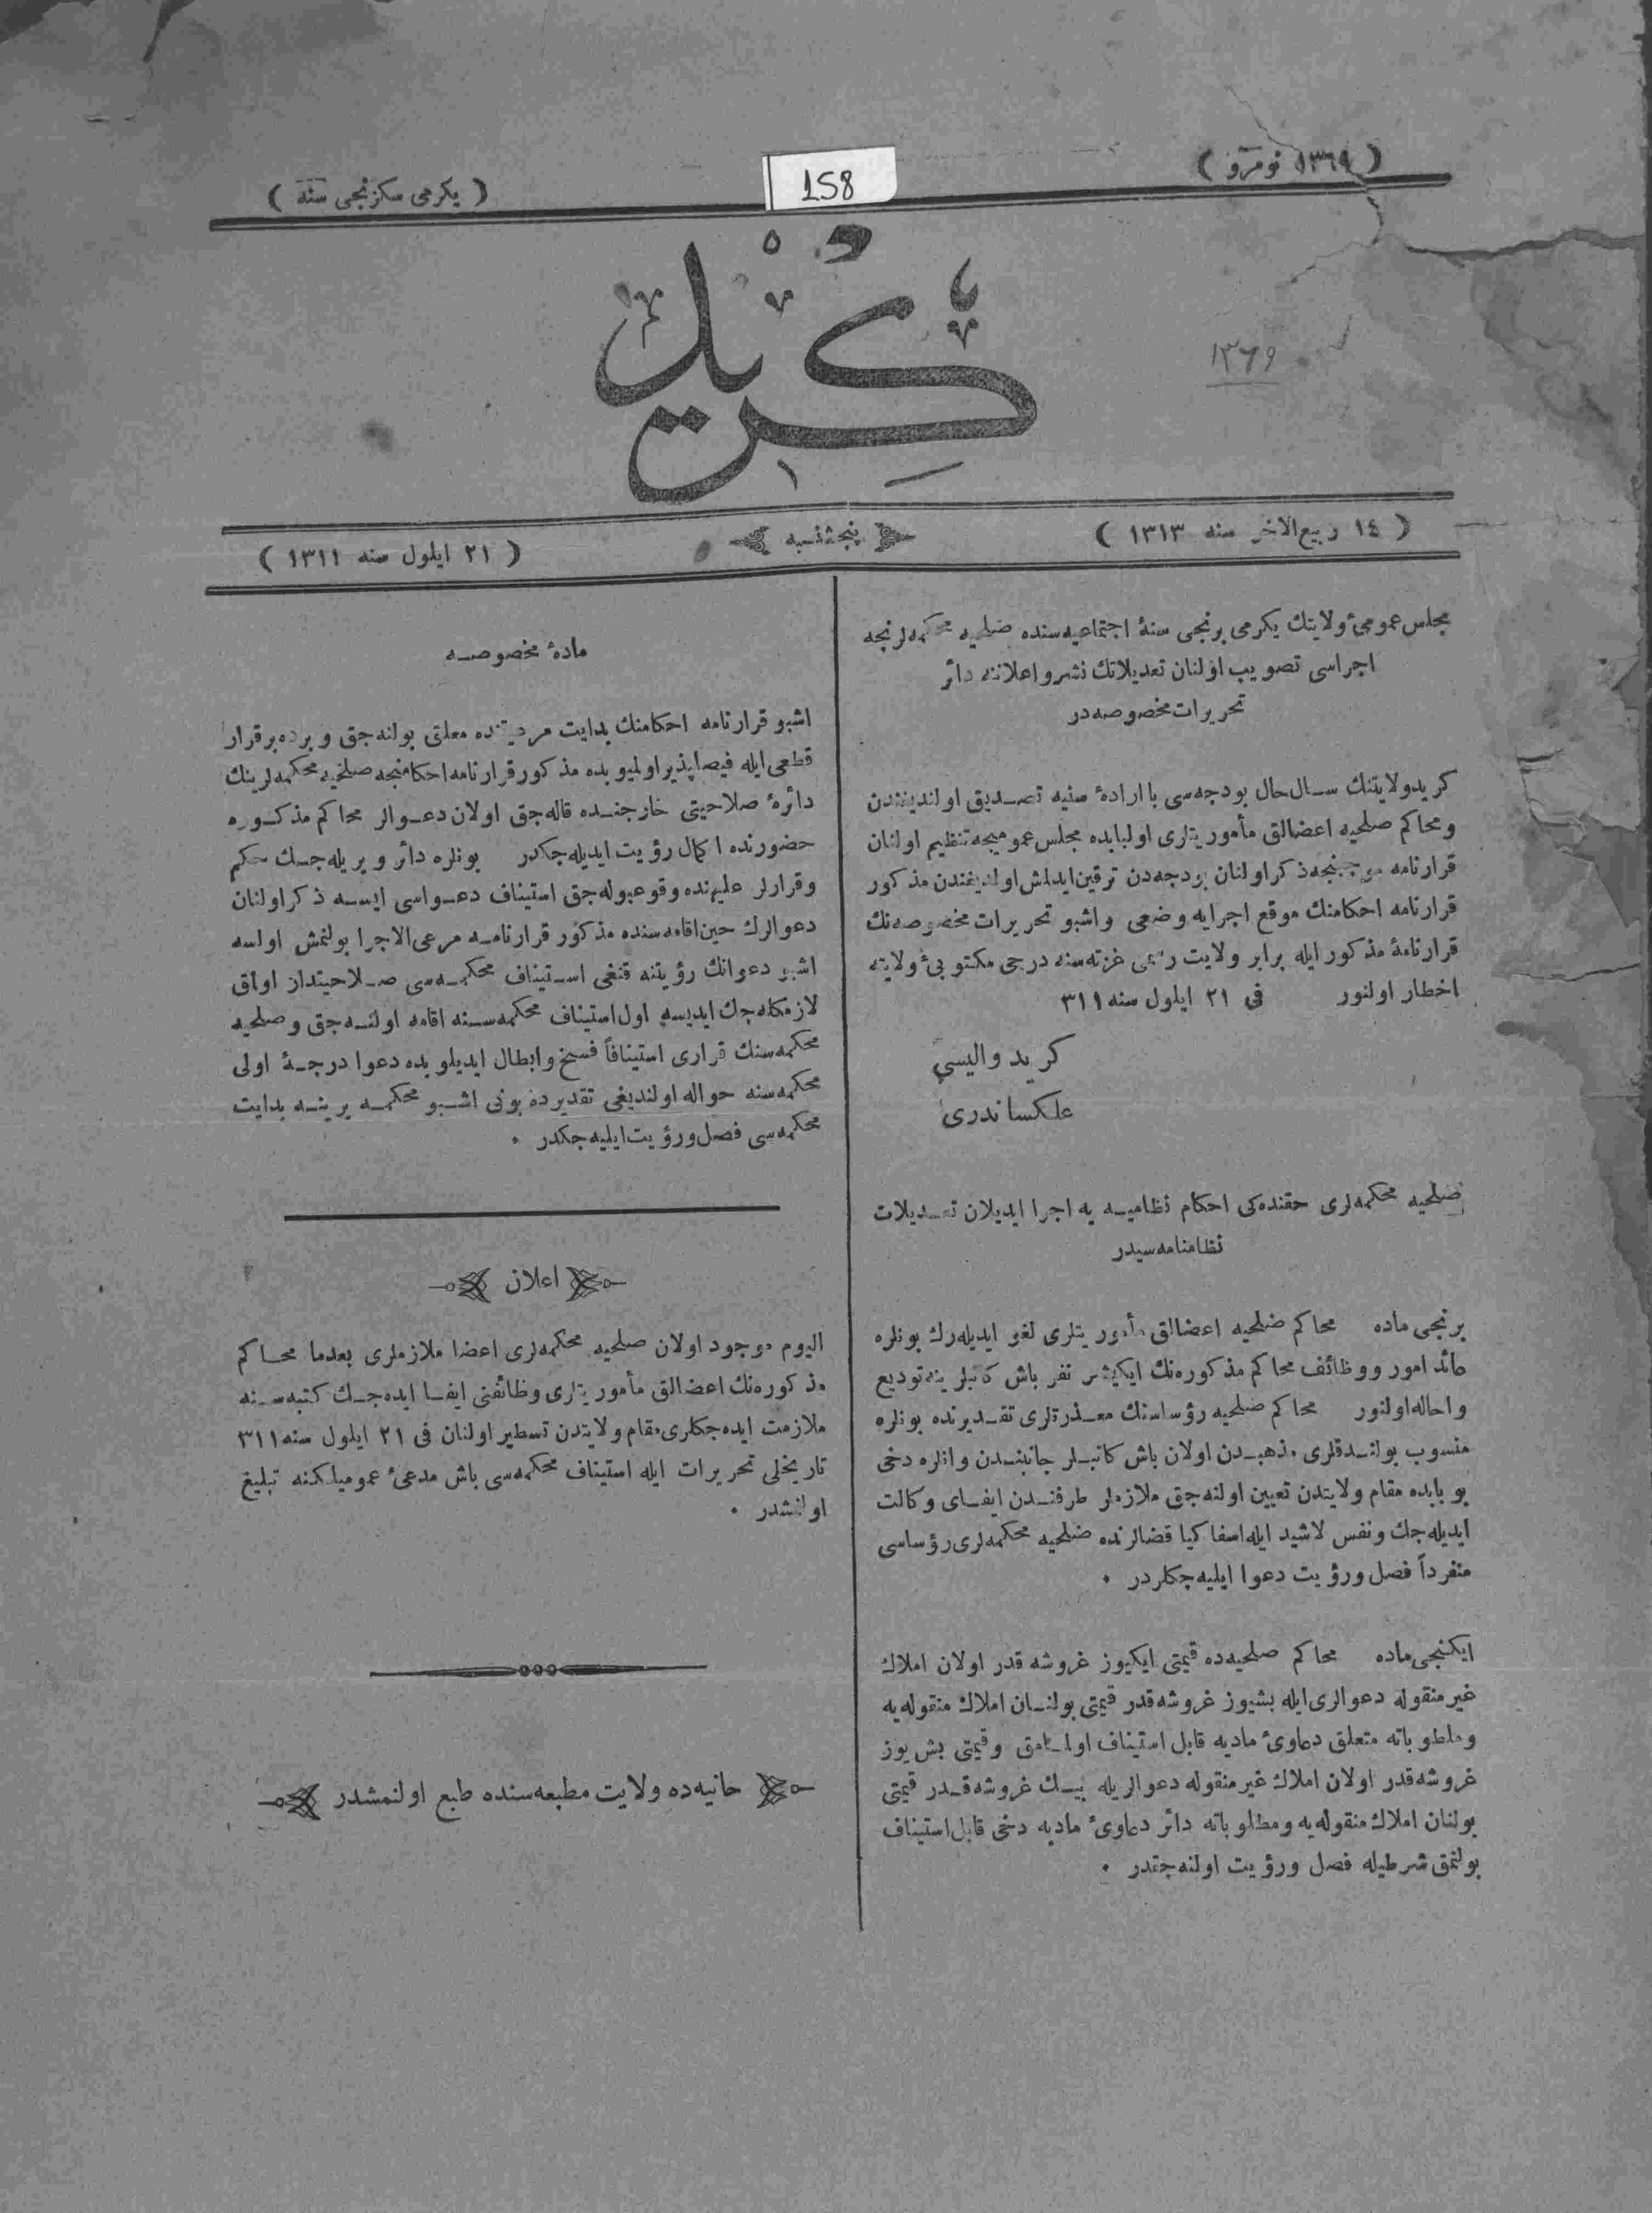 ( ١٣٦٩ نومرو )
158
( يكرمى سكزنجى سنه )
كريد
١٣٦٩
( ١٤ ربيع الاخر سنه ١٣١٣ )
پنجشنبه
( ٢١ ايلول سنه ١٣١١ )
مجلس عمومئ ولايتك يكرمى برنجى سنۀ اجتماعيه‌سنده صلحيه محكمه‌لرنجه
اجراسى تصويب اولنان تعديلاتك نشر و اعلاننه دائر
تحريرات مخصوصه‌در
كريد ولايتنك سـال حال بودجه‌سى با ارادۀ سنيه تصـديق اولنديغندن
و محاكم صلحيه اعضالق مأموريتلرى اولبابده مجلس عموميجه تنظيم اولنان
قرارنامه موجبنجه ذكر اولنان بودجه‌دن ترقين ايدلمش اولديغندن مذكور
قرارنامه احكامنك موقع اجرايه وضعى و اشبو تحريرات مخصوصه‌نك
قرارنامۀ مذكور ايله برابر ولايت رسمى غزته‌سنه درجى مكتوبئ ولايته
اخطار اولنور فى ٢١ ايلول سنه ٣١١
كريد واليسى
علكساندرى
صلحيه محكمه‌لرى حقنده‌كى احكام نظاميـه يه اجرا ايديلان تعـديلات
نظامنامه‌سيدر
برنجى ماده محاكم صلحيه اعضالق مأموريتلرى لغو ايديله‌رك بونلره
عائد امور و وظائف محاكم مذكوره‌نك ايكيشر نفر باش كاتبلرينه توديع
و احاله اولنور محاكم صلحيه رؤساسنك معـذرتلرى تقـديرنده بونلره
منسوب بولنـدقلرى مذهبـدن اولان باش كاتبـلر جانبنـدن و انلره دخى
بو بابده مقام ولايتدن تعيين اولنه‌جق ملازملر طرفنـدن ايفـاى وكالت
ايديله‌جك و نفس لاشيد ايله اسفاكيا قضالرنده صلحيه محكمه‌لرى رؤساسى
منفرداً فصل و رؤيت دعوا ايليه‌جكلردر ٠
ايكنجى ماده محاكم صلحيه‌ده قيمتى ايكيوز غروشه قدر اولان املاك
غير منقوله دعوالرى ايله بشيوز غروشه قدر قيمتى بولنـان املاك منقوله‌يه
و مطلوباته متعلق دعاوئ ماديه قابل استيناف اولـمامق و قيمتى بش يوز
غروشه قدر اولان املاك غير منقوله دعوالريله بيـك غروشه قـدر قيمتى
بولنان املاك منقوله‌يه و مطلوباته دائر دعاوئ ماديه دخى قابل استيناف
بولنمق شرطيله فصل و رؤيت اولنه‌جقدر ٠
مادۀ مخصوصـه
اشبو قرارنامه احكامنك بدايت مرعيتنده معلق بولنه‌جق و برده بر قرار
قطعى ايله فيصلپذير اولميوبده مذكور قرارنامه احكامنجه صلحيه محكمه‌لرينك
دائرۀ صلاحيتى خارجنـده قاله‌جق اولان دعـوالر محاكم مذكـوره
حضورنده اكمال رؤيت ايديله‌جكدر بونلره دائر ويريله‌جـك حكم
و قرارلر عليهنده وقوعبوله‌جق استيناف دعـواسى ايسـه ذكر اولنان
دعوالرك حين اقامه‌سنده مذكور قرارنامـه مرعى الاجرا بولنمش اولسه
اشبو دعوانك رؤيتنه قنغى اسـتيناف محكمـه‌سى صـلاحيتدار اولمق
لازمكله‌جك ايديسه اول استيناف محكمه‌سـنه اقامه اولنـه‌جق و صلحيه
محكمه‌سنك قرارى استينافاً فسخ و ابطال ايديلوبده دعوا درجـۀ اولى
محكمه‌سنه حواله اولنديغى تقديرده بونى اشـبو محكمـه يرينـه بدايت
محكمه‌سى فصل و رؤيت ايليه‌جكدر ٠
اعلان
اليوم موجود اولان صلحيه محكمه‌لرى اعضا ملازملرى بعدما محـاكم
مذكوره‌نك اعضالق مأموريتلرى وظائفنى ايفـا ايده‌جـك كتبه‌سـنه
ملازمت ايده‌جكلرى مقام ولايتدن تسطير اولنان فى ٢١ ايلول سنه ٣١١
تاريخلى تحريرات ايله استيناف محكمه‌سى باش مدعئ عموميلكنه تبليغ
اولنمشدر ٠
حانيه‌ده ولايت مطبعه‌سنده طبع اولنمشدر